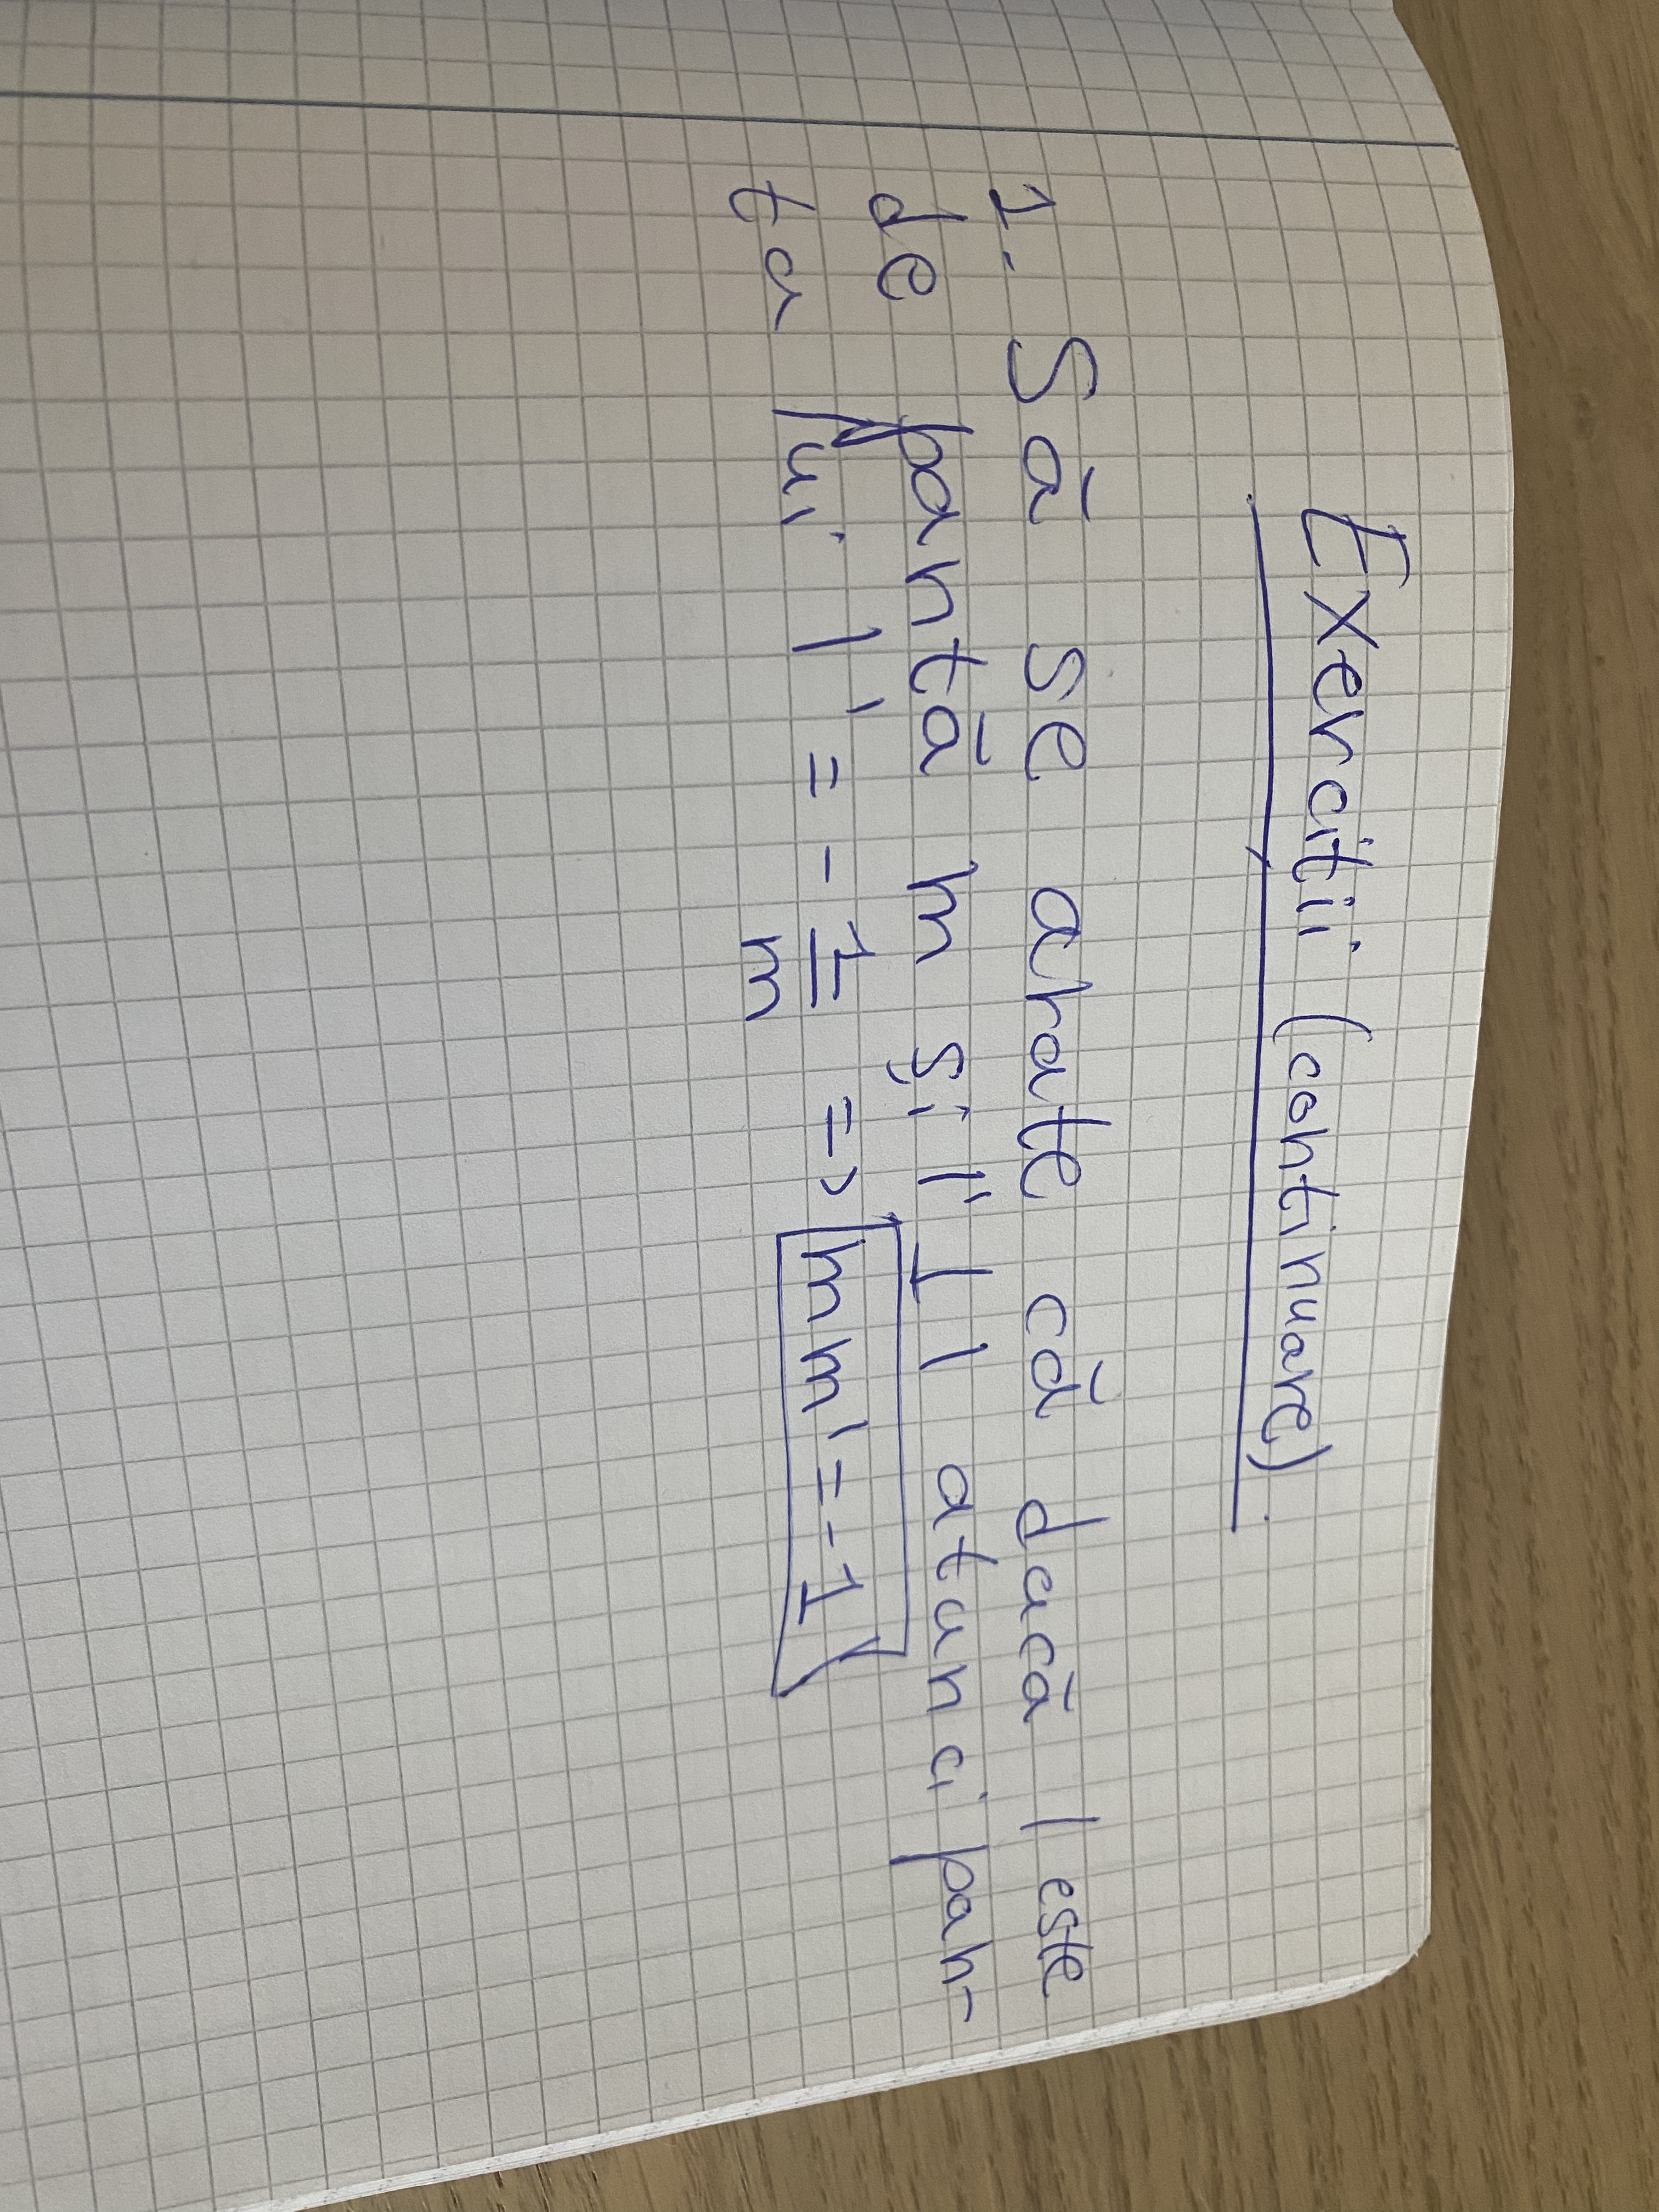 Exerciții (continuare)
1. Să se arate că dacă l este
de pantă m și l' ⊥ l atunci pan-
ta lui l' = - 1/m => mm' = -1